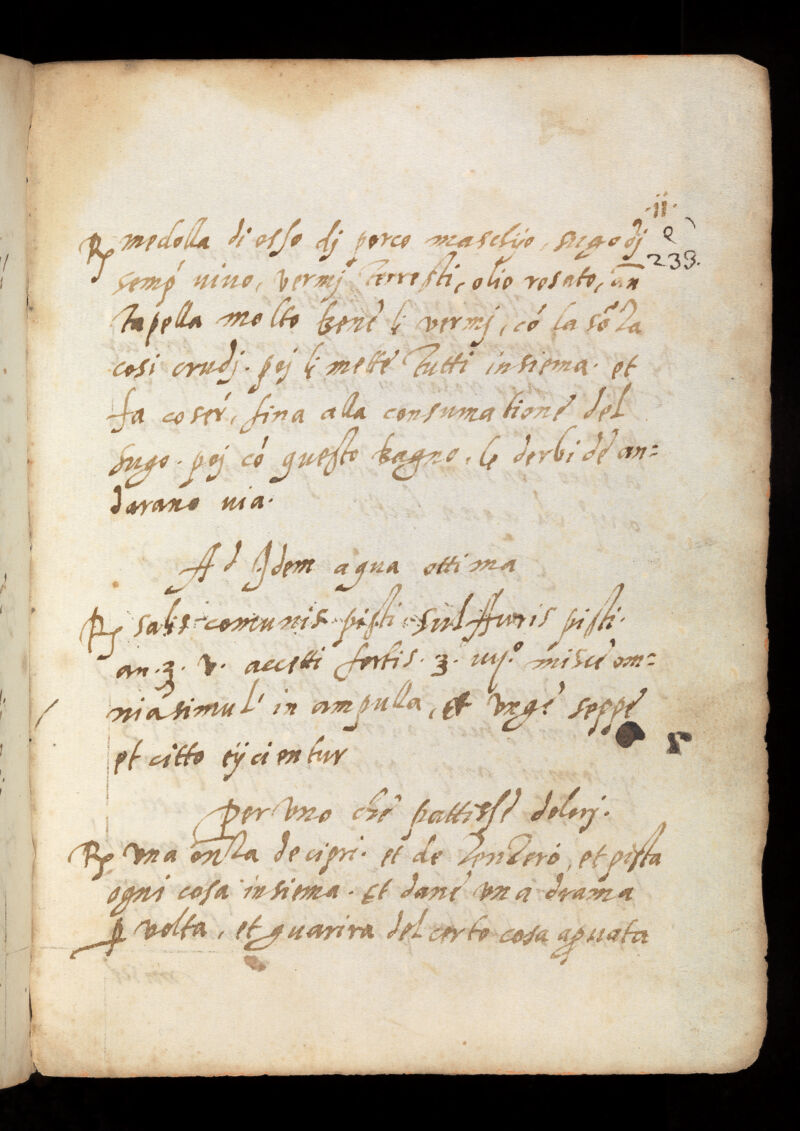 ·ii·
e
238.
Rx medolla di osso dj porco maschjo, sugo dj
semp̃ uiuo, vermj terresti, olio rosato, an̄
tapella molto bene lj vermj, cõ la sõza
cosi crudj. poj lj mette tutti insiema. et
fa coser, fina alla consumatione del
sugo. poj cõ questo bagno, le derbide an=
darano uia.
Ad Idem aqua ottima
Rx salis comunis pisti sulffuris pisti.
an. ʒ. v. acceti fortis. ʒ. iiij.º misce om=
nia simul in ampulla, et unge seppe
et citto eijcientur
Per uno che pattisse dolorj.
Rx una onza de cipri. et de zenzero, et pista
ogni cosa insiema. Et dane una drama
ꝑ volta, et guarira del certo cosa aꝓuata